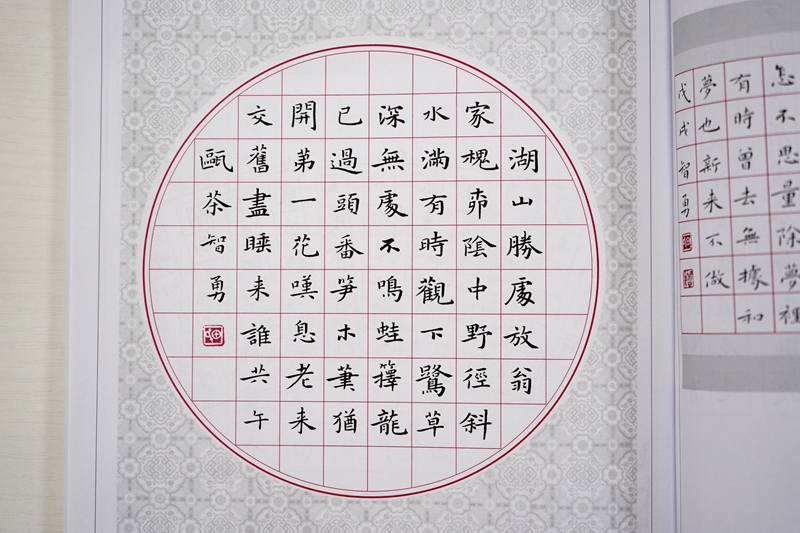 湖山勝處放翁
家槐丣陰中野徑斜
水滿有時觀下鷺草
深無處不鳴蛙籜龍
已過頭番笋木筆猶
開弟一花嘆息老来
交舊盡睡来誰共午
甌茶智勇
怎不思量除夢裡
有時曾去無據和
夢也新来不做
戊戌智勇